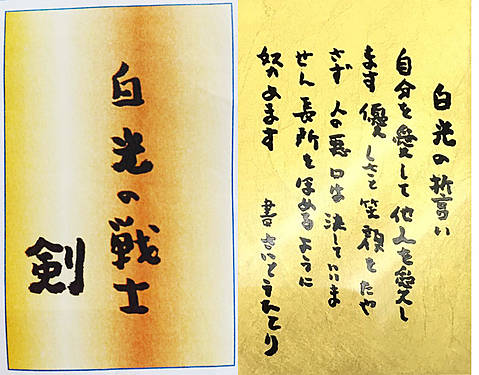 白光の戦士
剣
白光の誓い
自分を愛して他人を愛し
ます 優しさと笑顔をたや
さず 人の悪口は決していいま
せん 長所をほめるように
努めます 書 さいとうひとり